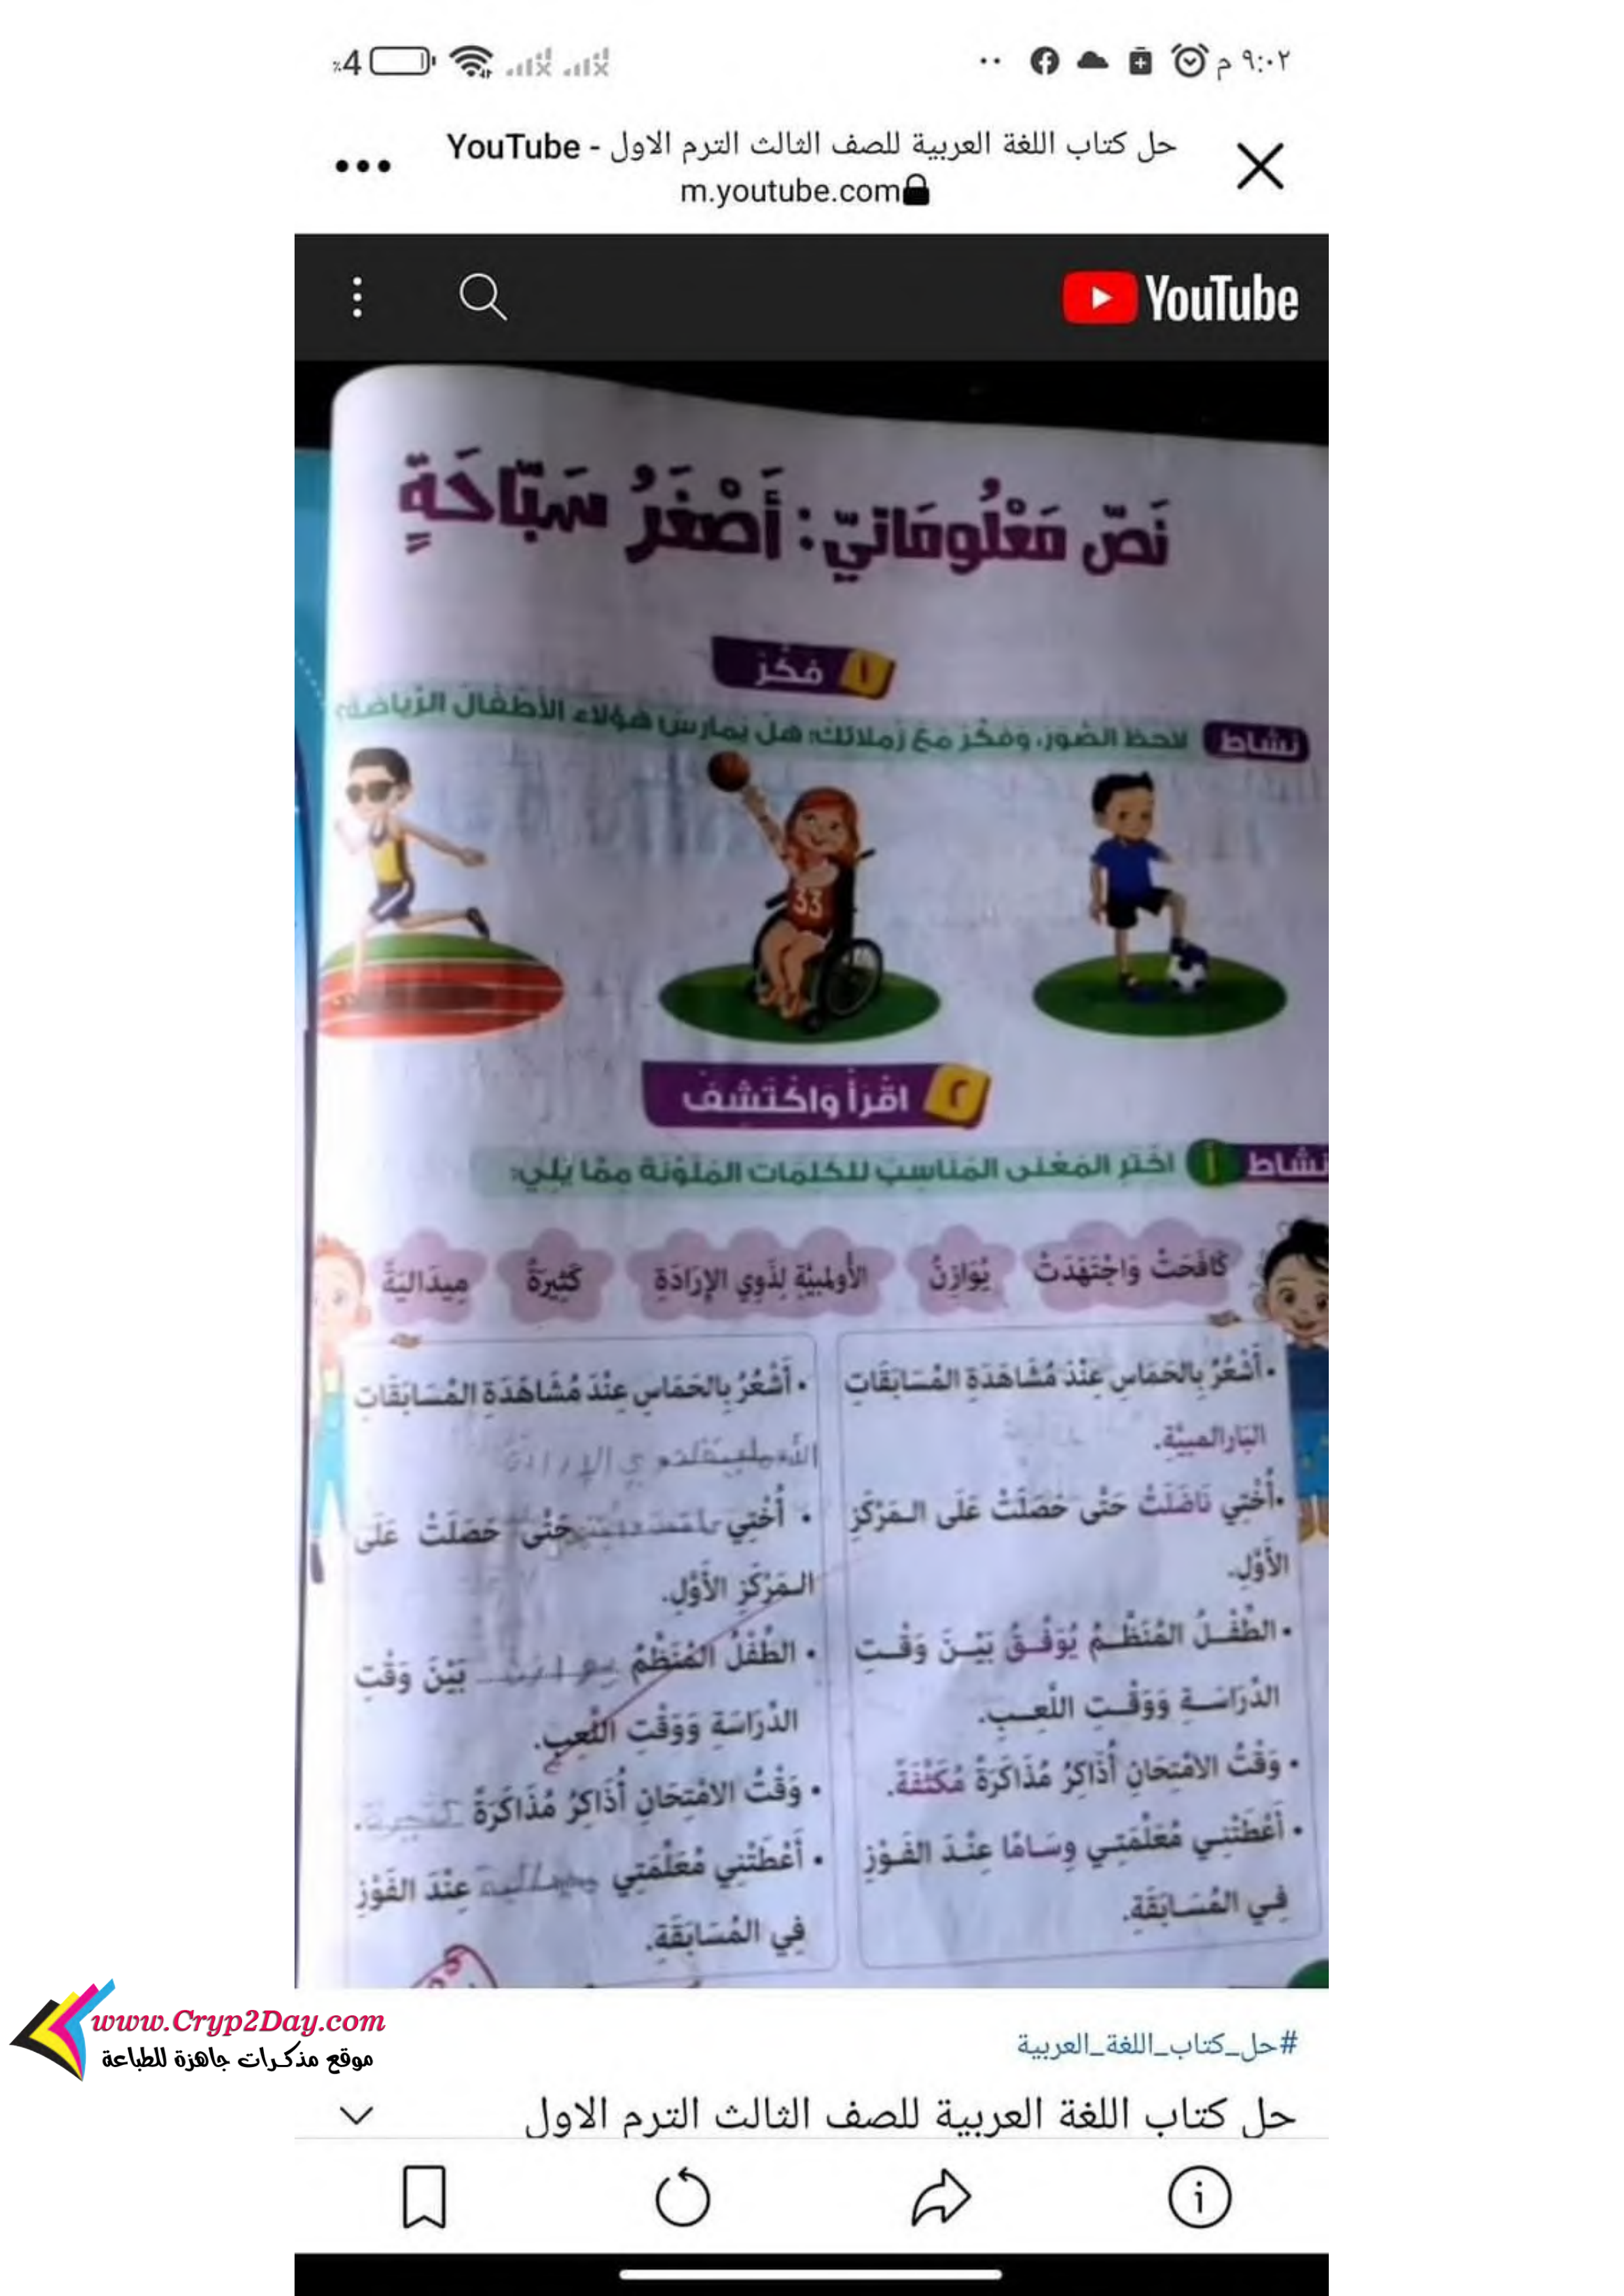 ٩:٠٢ م
٪4
حل كتاب اللغة العربية للصف الثالث الترم الاول - YouTube
m.youtube.com
YouTube
نَصّ مَعْلُومَاتيّ: أَصْغَرُ سَبَّاحَةٍ
١ فَكِّرْ
نشاط لاحظ الصُّوَر، وَفَكِّرْ مَعَ زُملائكَ: هَلْ يُمارِسُ هَؤُلاءِ الأَطْفَالُ الرِّياضَةَ؟
33
٢ اقْرَأْ وَاكْتَشِفْ
نشاط أ اخْتَرِ المَعْنَى المُنَاسِبَ للكَلِمَاتِ المُلَوَّنَةِ مِمَّا يَلِي:
كَافَحَتْ وَاجْتَهَدَتْ
يُوَازِنُ
الأُولمبيَّةِ لِذَوِي الإِرَادَةِ
كَثِيرَةً
مِيدَاليَةً
• أَشْعُرُ بِالحَمَاسِ عِنْدَ مُشَاهَدَةِ المُسَابَقَاتِ
البَارالمبيَّةِ.
• أُخْتِي نَاضَلَتْ حَتَّى حَصَلَتْ عَلَى المَرْكَزِ
الأَوَّلِ.
• الطِّفْلُ المُنَظَّمُ يُوَفِّقُ بَيْنَ وَقْتِ
الدِّرَاسَةِ وَوَقْتِ اللَّعِبِ.
• وَقْتُ الامْتِحَانِ أُذَاكِرُ مُذَاكَرَةً مُكَثَّفَةً.
• أَعْطَتْنِي مُعَلِّمَتِي وِسَامًا عِنْدَ الفَوْزِ
فِي المُسَابَقَةِ.
• أَشْعُرُ بِالحَمَاسِ عِنْدَ مُشَاهَدَةِ المُسَابَقَاتِ
• أُخْتِي حَتَّى حَصَلَتْ عَلَى
المَرْكَزِ الأَوَّلِ.
• الطِّفْلُ المُنَظَّمُ يوازن بَيْنَ وَقْتِ
الدِّرَاسَةِ وَوَقْتِ اللَّعِبِ.
• وَقْتُ الامْتِحَانِ أُذَاكِرُ مُذَاكَرَةً كثيرة.
• أَعْطَتْنِي مُعَلِّمَتِي ميدالية عِنْدَ الفَوْزِ
فِي المُسَابَقَةِ.
www.Cryp2Day.com
موقع مذكرات جاهزة للطباعة
#حل_كتاب_اللغة_العربية
حل كتاب اللغة العربية للصف الثالث الترم الاول